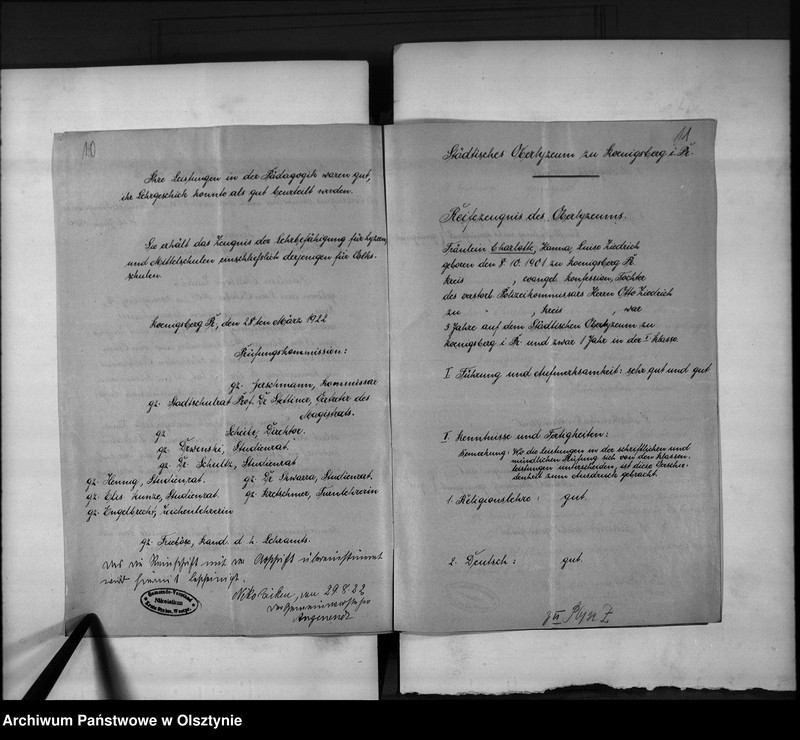 10
Ihre Leistungen in der Pädagogik waren gut,
ihr Lehrgeschick konnte als gut beurteilt werden.
Sie erhält das Zeugnis der Lehrbefähigung für Lyzeen
und Mittelschulen einschließlich derjenigen für Volks-
schulen.
Koenigsberg Pr, den 28ten März 1922
Prüfungskommission:
gz. Jaschmann, Kommissar
gz. Stadtschulrat Prof. Dr Stettiner, Vertreter des
Magistrats.
gz Scheibe, Direktor.
gz. Studienrat.
gz. Dr. Schultz, Studienrat
gz. Hennig, Studienrat. gz. Dr Skwarra, Studienrat.
gz. Kunze, Studienrat. gz. Kretschmer, Turnlehrerin
gz. Engelbrecht, Zeichenlehrerin
gz. Kand. d. h. Lehramts.
Das die Reinschrift mit der Abschrift übereinstimmt
wird hiermit bescheinigt.
Nikolaiken, den 29.8.22
Der Gemeindevorsteher
Gemeinde-Vorstand
Nikolaiken
11
Städtisches Oberlyzeum zu Koenigsberg i. Pr.
Reifezeugnis des Oberlyzeums.
Fräulein Charlotte, Hanna, Luise Ziedrich
geboren den 8. 10. 1901 zu Koenigsberg Pr.
Kreis , evangel. Konfession, Tochter
des verstorb. Polizeikommissars Herrn Otto Ziedrich
zu " , Kreis , war
3 Jahre auf dem Städtischen Oberlyzeum zu
Koenigsberg i Pr. und zwar 1 Jahr in der I Klasse.
I. Führung und Aufmerksamkeit: sehr gut und gut
II. Kenntnisse und Fertigkeiten:
Bemerkung: Wo die Leistungen in der schriftlichen und
mündlichen Prüfung sich von den Klassen-
leistungen unterscheiden, ist diese Verschie-
denheit zum Ausdruck gebracht.
1. Religionslehre: gut.
2. Deutsch: gut.
Archiwum Państwowe w Olsztynie